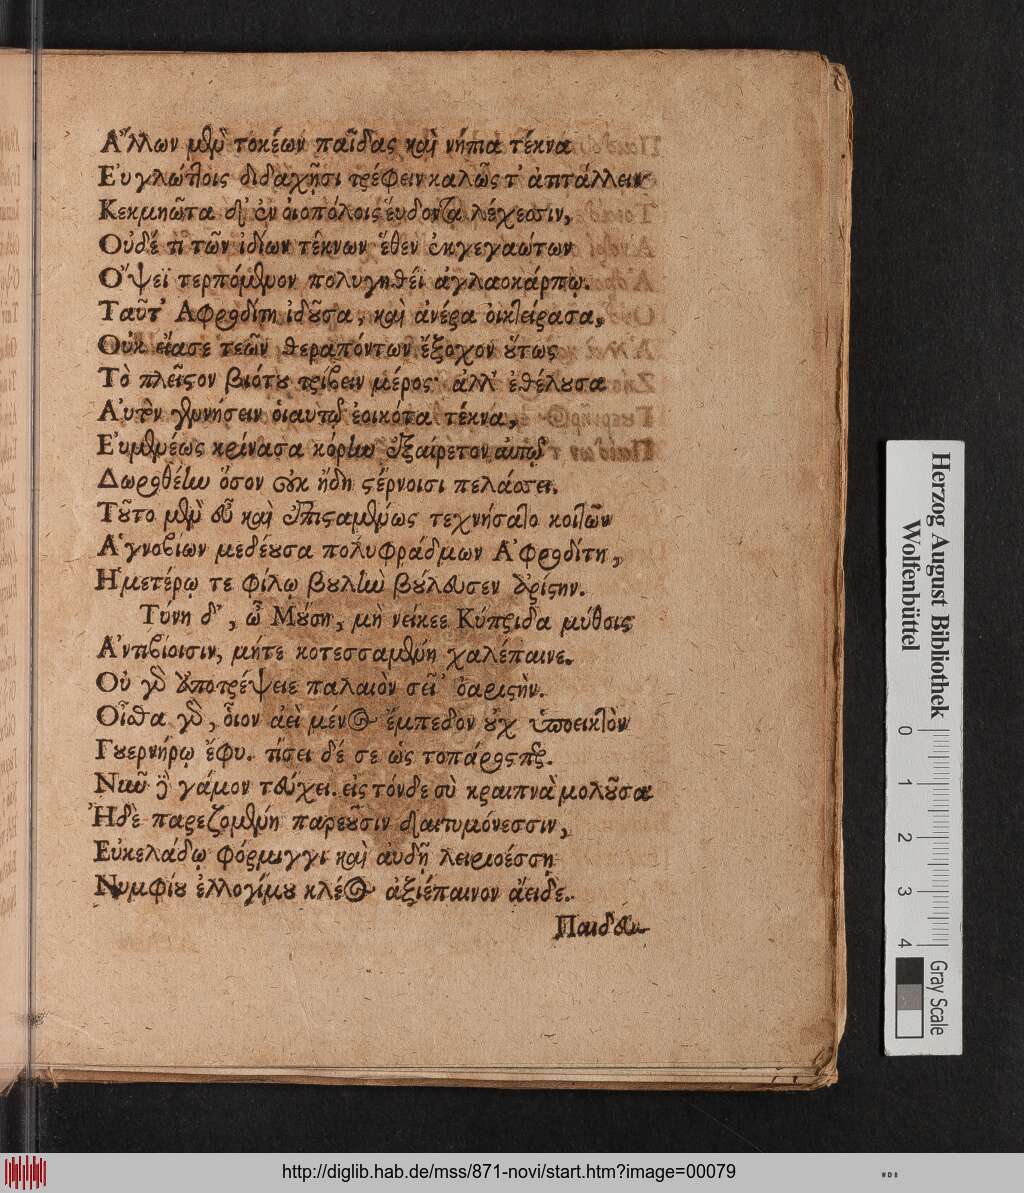 Ἄλλων μὲν τοκέων παῖδας καὶ νήπια τέκνα
Εὐγλώττοις διδαχῇσι τρέφειν καλῶς τ' ἀπτάλλειν
Κεκμηῶτα δι' ἐν οἰοπόλοις εὕδοντα λέχεσσιν,
Οὐδέ τι τῶν ἰδίων τέκνων ἕθεν ἐκγεγαώτων
Ὄψεϊ τερπόμενον πολυγηθέϊ ἀγλαοκάρπῳ.
Ταῦτ' Ἀφροδίτη ἰδοῦσα, καὶ ἀνέρα οἰκτείρασα,
Οὐκ εἴασε τεῶν θεραπόντων ἔξοχον οὕτως
Τὸ πλεῖστον βιότου τρίβειν μέρος· ἀλλ' ἐθέλουσα
Αὐτὸν γεννήσειν οἱαυτῷ ἐοικότα τέκνα,
Εὐμενέως κρίνασα κόρην ἐξαίρετον αὐτῷ
Δωροθέην ὅσον οὐκ ἤδη στέρνοισι πελάσσει.
Τοῦτο μὲν εὖ καὶ ἐπισταμένως τεχνήσατο κοιτῶν
Ἁγνοβίων μεδέουσα πολυφράδμων Ἀφροδίτη,
Ἡμετέρῳ τε φίλῳ βουλὴν βούλευσεν ἀρίστην.
Τύνη δ', ὦ Μούση, μὴ νείκεε Κύπριδα μύθοις
Ἀντιβίοισιν, μήτε κοτεσσαμένη χαλέπαινε.
Οὐ γὰρ ὑποτρέψειε παλαιὸν σεῖ' ὀαριστὴν.
Οἶσθα γὰρ, οἷον ἀεὶ μένος ἔμπεδον οὐχ ὑποεικτὸν
Γουερνήρῳ ἔφυ. τίσει δέ σε ὡς τοπάροσπερ.
Νῦν γὰρ γάμον τεύχει. εἰς τόνδε σὺ κραιπνὰ μολοῦσα
Ἠδὲ παρεζομένη παρεοῦσιν δαιτυμόνεσσιν,
Εὐκελάδῳ φόρμιγγι καὶ αὐδῇ λειριοέσσῃ
Νυμφίου ἐλλογίμου κλέος ἀξιέπαινον ἄειδε.
Παιδευ-
Herzog August Bibliothek
Wolfenbüttel
0 1 2 3 4
Gray Scale
http://diglib.hab.de/mss/871-novi/start.htm?image=00079